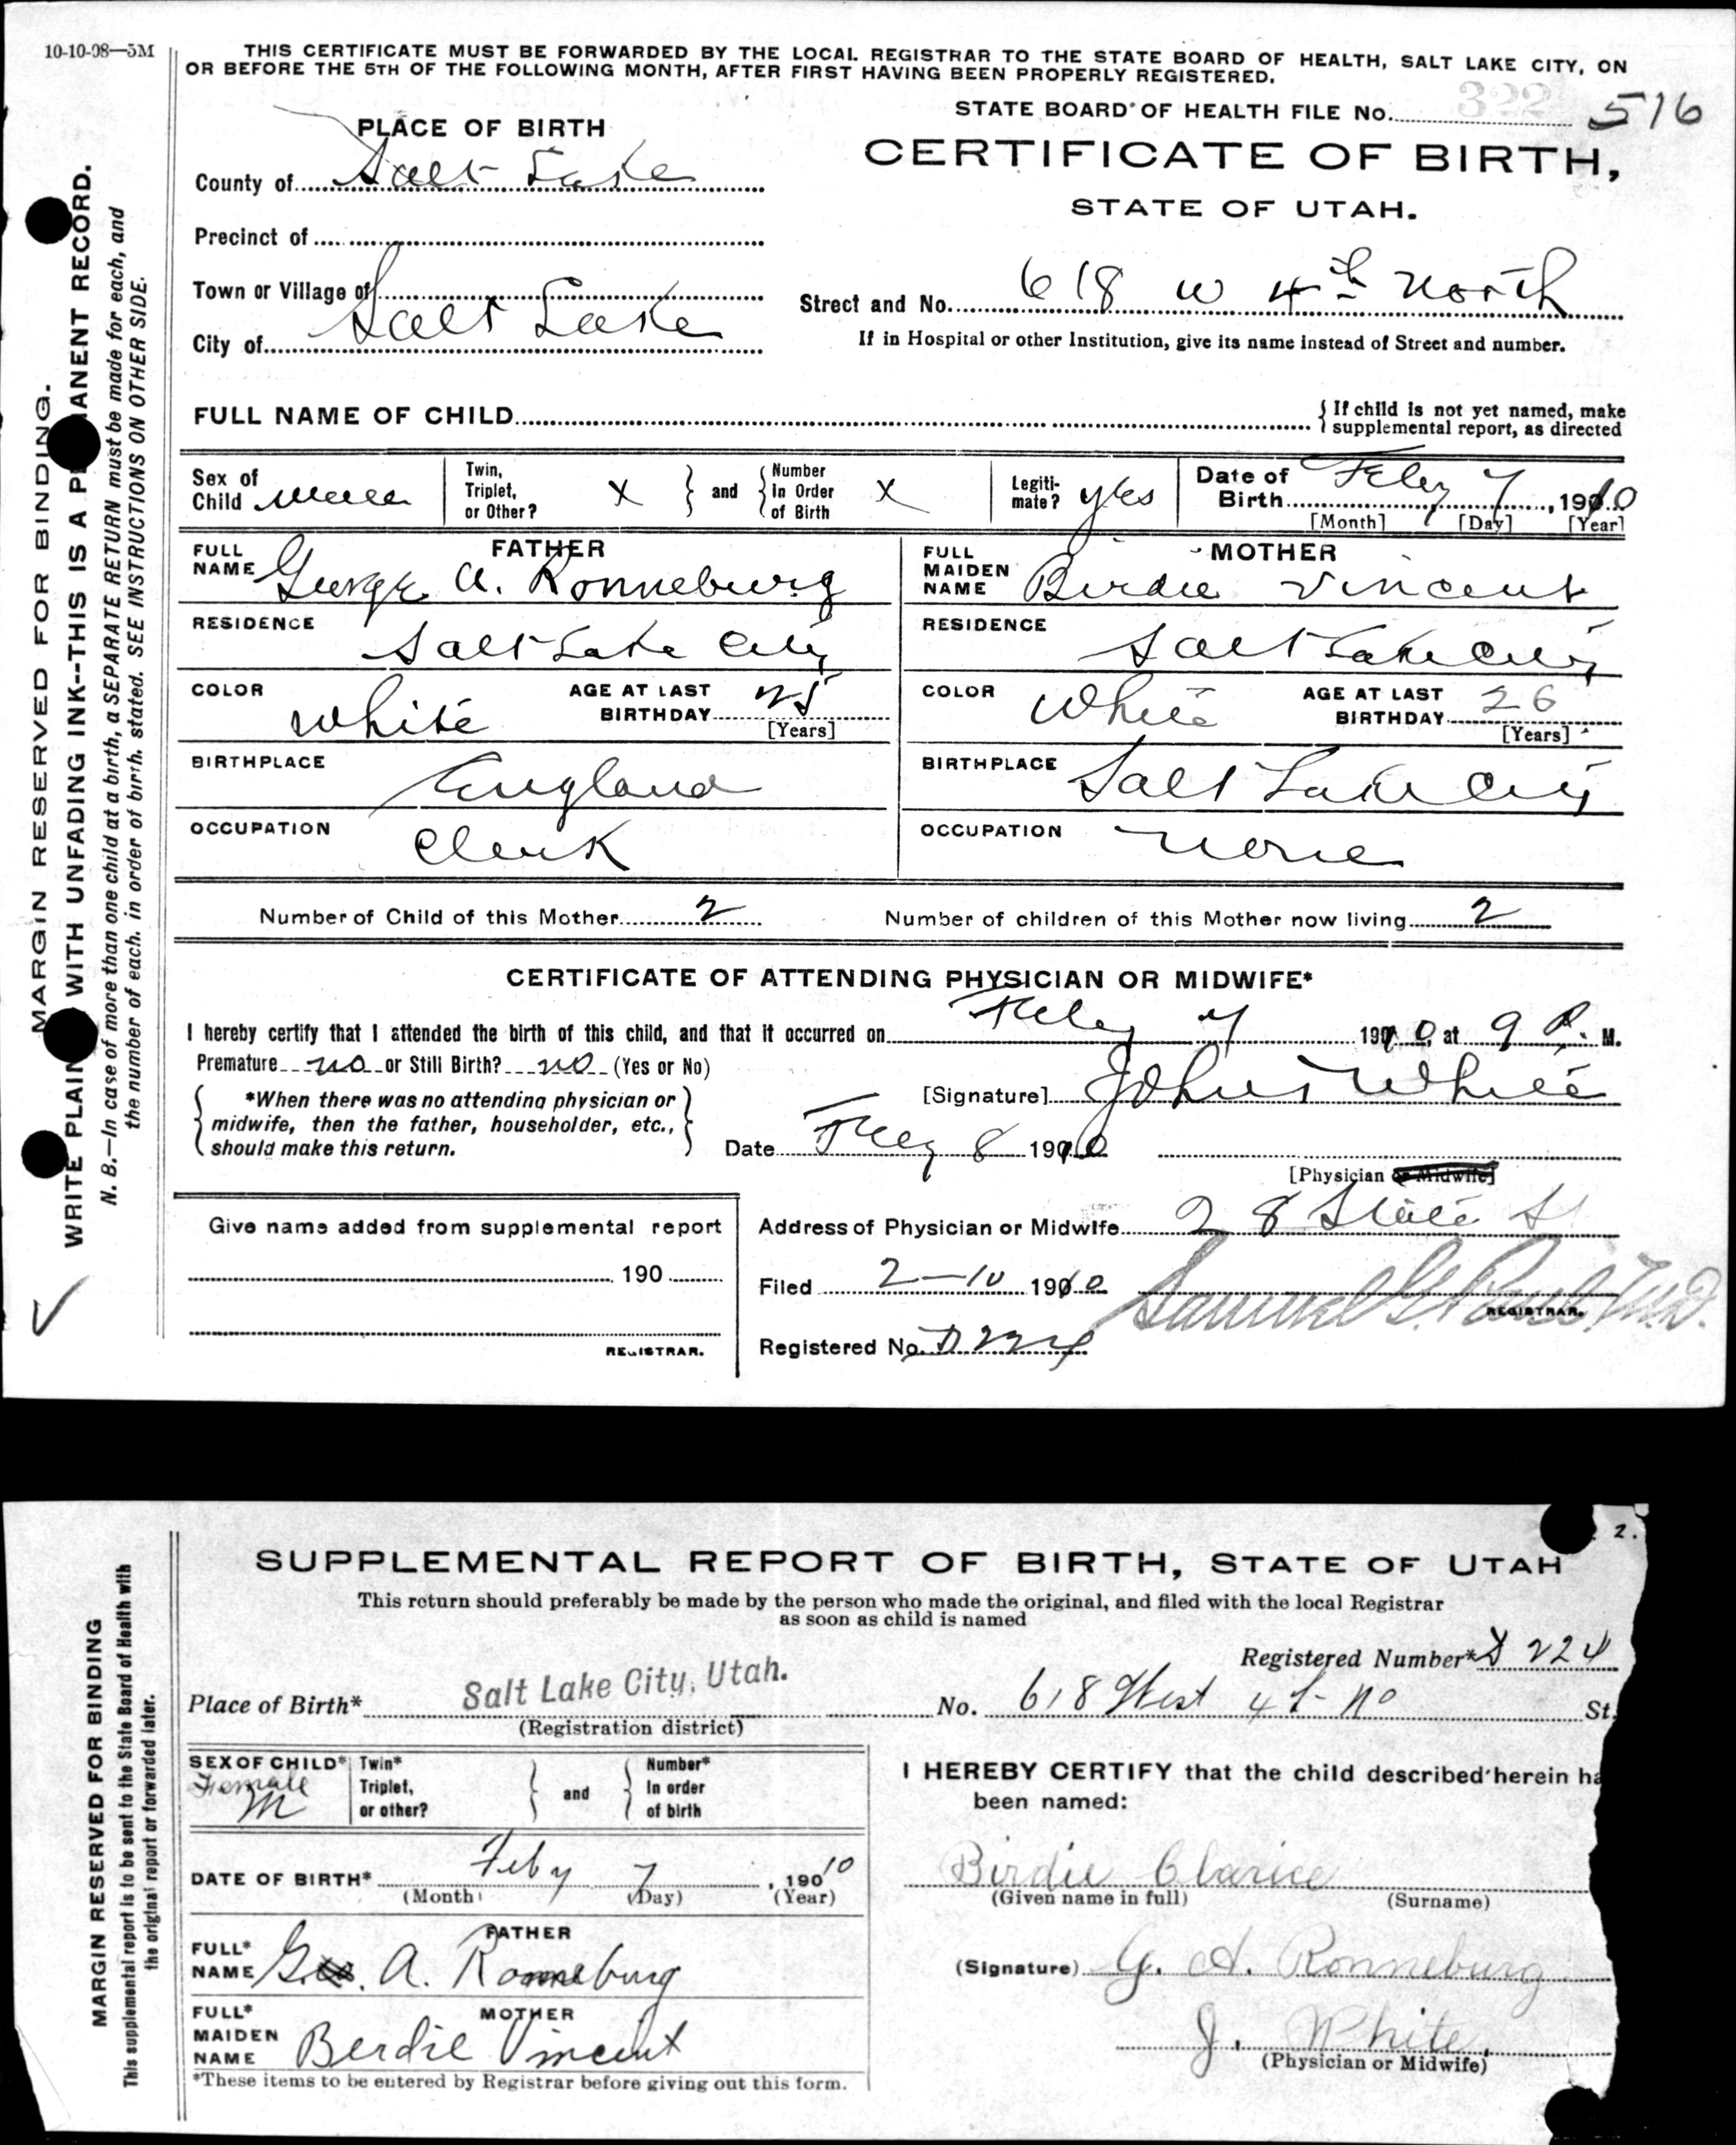 10-10-08—5M
THIS CERTIFICATE MUST BE FORWARDED BY THE LOCAL REGISTRAR TO THE STATE BOARD OF HEALTH, SALT LAKE CITY, ON
OR BEFORE THE 5TH OF THE FOLLOWING MONTH, AFTER FIRST HAVING BEEN PROPERLY REGISTERED.
STATE BOARD OF HEALTH FILE No. 322 516
PLACE OF BIRTH
CERTIFICATE OF BIRTH,
STATE OF UTAH.
County of Salt Lake
Precinct of
Town or Village of
City of Salt Lake
Street and No. 618 W 4th North
If in Hospital or other Institution, give its name instead of Street and number.
FULL NAME OF CHILD
{ If child is not yet named, make
supplemental report, as directed
Sex of Child
Twin, Triplet, or Other? X } and { Number In Order of Birth X
Legitimate? yes
Date of Birth Feby 7, 1910
[Month] [Day] [Year]
FATHER
FULL NAME George A. Ronneburg
RESIDENCE Salt Lake City
COLOR White AGE AT LAST BIRTHDAY 25 [Years]
BIRTHPLACE England
OCCUPATION Clerk
MOTHER
FULL MAIDEN NAME Birdie Vincent
RESIDENCE Salt Lake City
COLOR White AGE AT LAST BIRTHDAY 26 [Years]
BIRTHPLACE Salt Lake City
OCCUPATION None
Number of Child of this Mother 2 Number of children of this Mother now living 2
CERTIFICATE OF ATTENDING PHYSICIAN OR MIDWIFE*
I hereby certify that I attended the birth of this child, and that it occurred on Feby 7 1910, at 9 P. M.
Premature no or Still Birth? no (Yes or No)
{ *When there was no attending physician or
midwife, then the father, householder, etc.,
should make this return. }
[Signature] White
Date Feby 8 1910
[Physician or Midwife]
Address of Physician or Midwife 28 State St
Give name added from supplemental report
190
REGISTRAR.
Filed 2—10 1910
Samuel G. Paul, M.D.
REGISTRAR.
Registered No. D 224
MARGIN RESERVED FOR BINDING.
WRITE PLAIN WITH UNFADING INK--THIS IS A P ANENT RECORD.
N. B.—In case of more than one child at a birth, a SEPARATE RETURN must be made for each, and
the number of each, in order of birth, stated. SEE INSTRUCTIONS ON OTHER SIDE.
2.
SUPPLEMENTAL REPORT OF BIRTH, STATE OF UTAH
This return should preferably be made by the person who made the original, and filed with the local Registrar
as soon as child is named
Registered Number* D 224
Place of Birth* Salt Lake City, Utah. No. 618 West 4th No St.
(Registration district)
SEX OF CHILD* Female M
Twin* Triplet, or other? } and { Number* In order of birth
DATE OF BIRTH* Feby 7, 1910
(Month) (Day) (Year)
FATHER
FULL* NAME Geo. A. Ronneburg
MOTHER
FULL* MAIDEN NAME Berdie Vincent
*These items to be entered by Registrar before giving out this form.
I HEREBY CERTIFY that the child described herein ha
been named:
Birdie Clarice
(Given name in full) (Surname)
(Signature) G. A. Ronneburg
J. White
(Physician or Midwife)
MARGIN RESERVED FOR BINDING
This supplemental report is to be sent to the State Board of Health with
the original report or forwarded later.